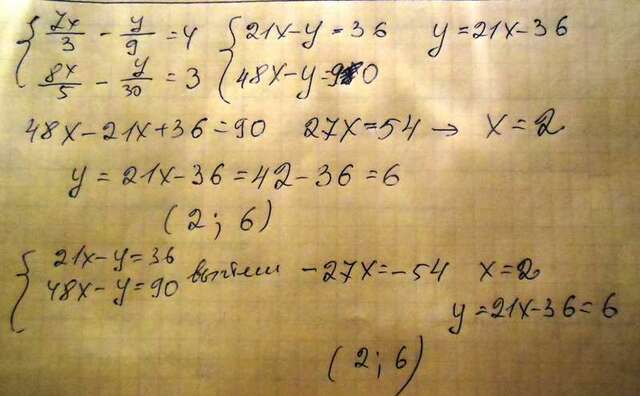 { 7x/3 - y/9 = 4 { 21x - y = 36 y = 21x - 36
{ 8x/5 - y/30 = 3 { 48x - y = 90
48x - 21x + 36 = 90 27x = 54 → x = 2
y = 21x - 36 = 42 - 36 = 6
(2; 6)
{ 21x - y = 36
{ 48x - y = 90 вычтем -27x = -54 x = 2
y = 21x - 36 = 6
(2; 6)